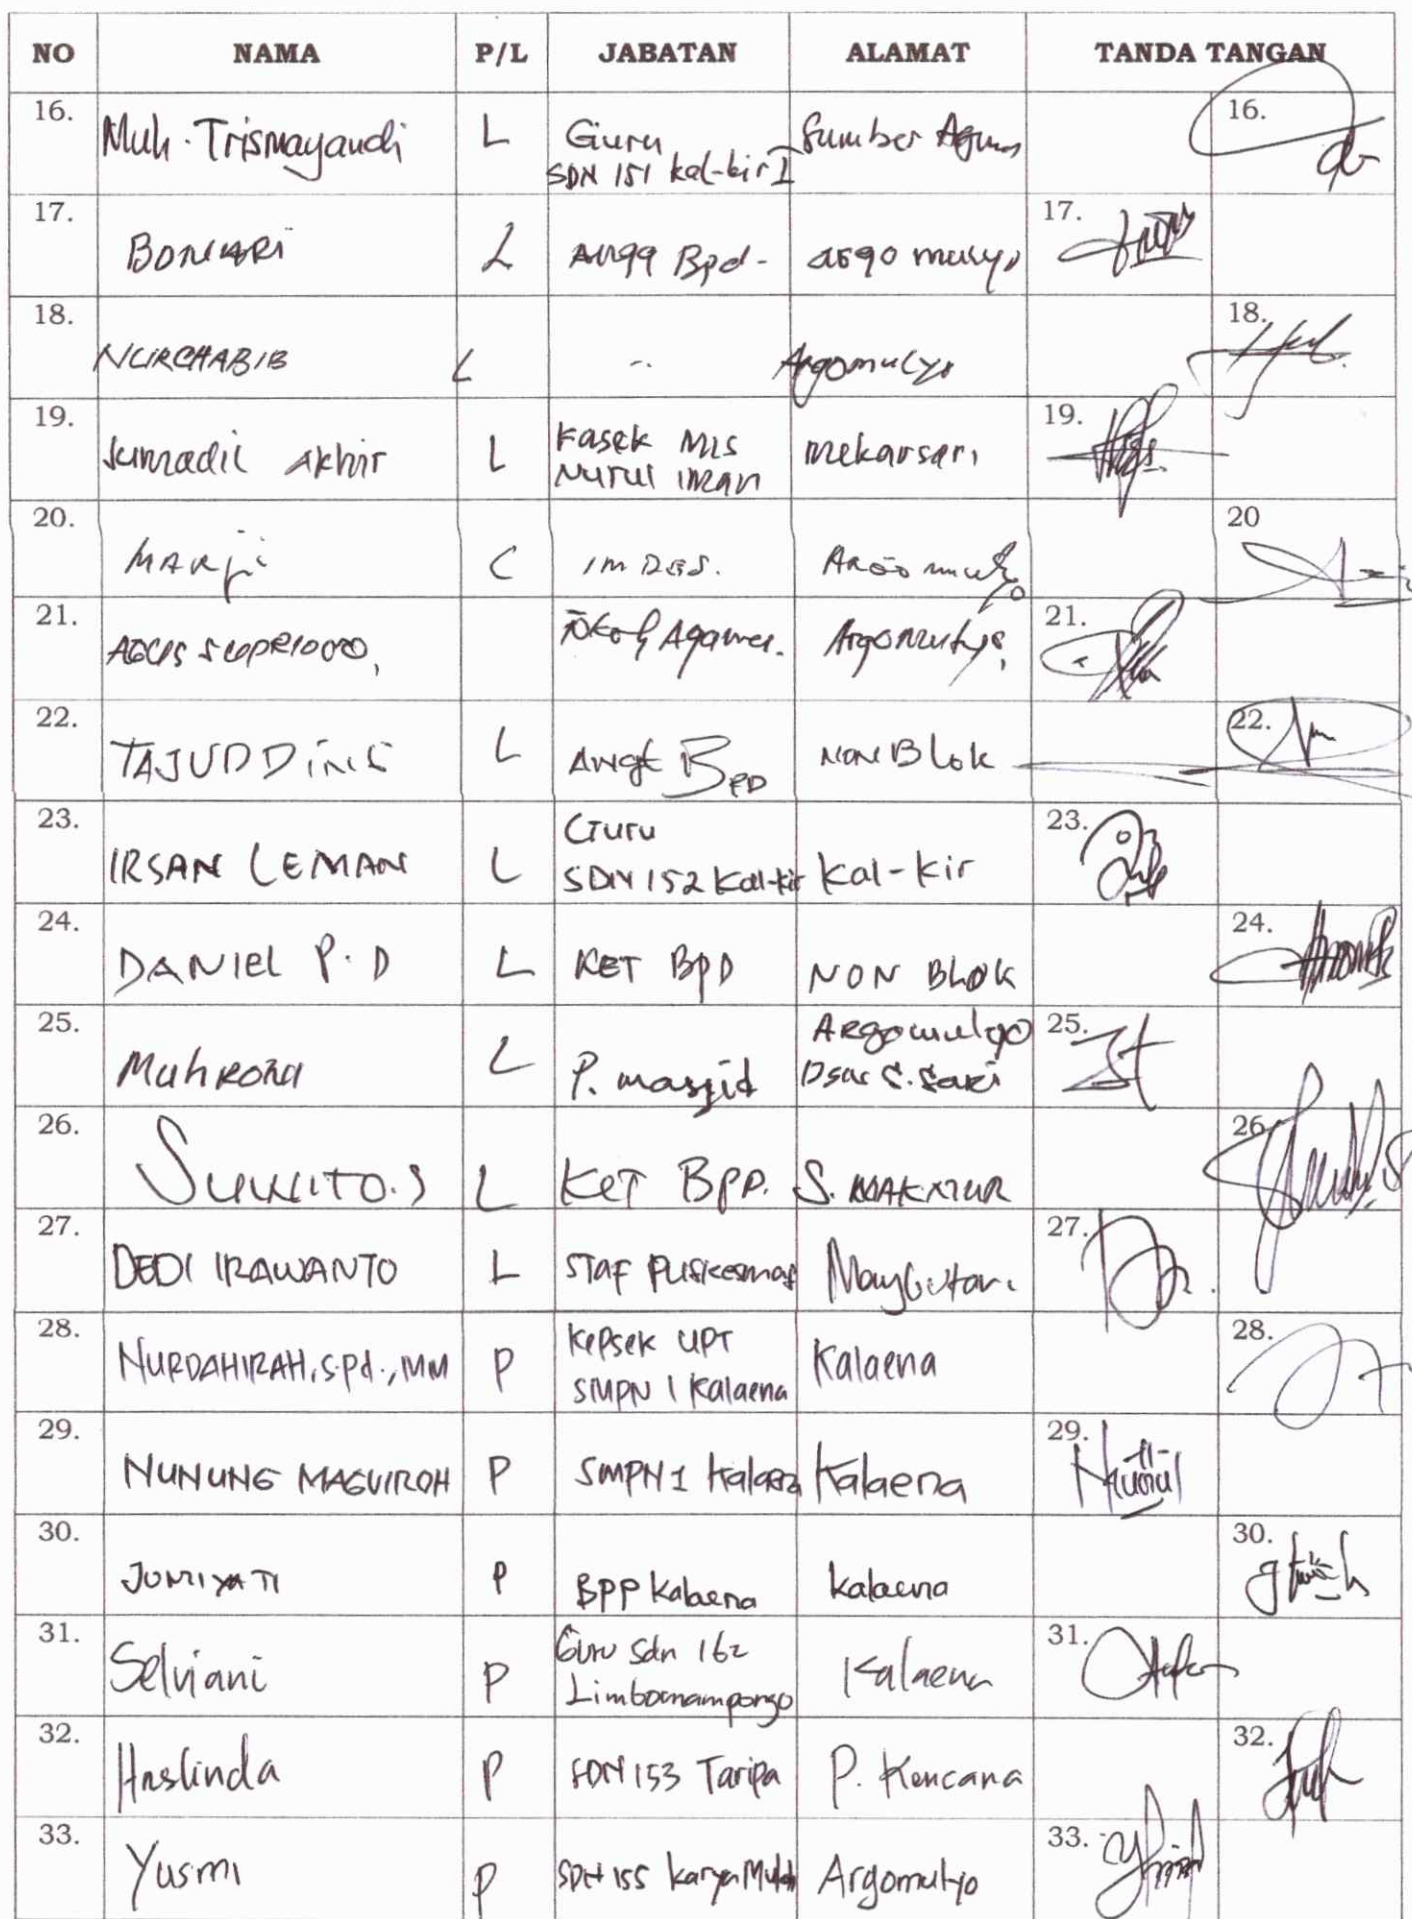 NO NAMA P/L JABATAN ALAMAT TANDA TANGAN
16. Muh. Trismayandi L Guru Sumber Agung 16.
SDN 151 kal-kir I
17. BONIARI L Angg Bpd- argo mulyo 17.
18. NURCHABIB L -. Argomulyo 18.
19. Jumadil Akhir L Kasek MIS Mekarsari 19.
Nurul iman
20. MARji L 20
21. AGUS SUPRIONO, Agama. Argomulyo, 21.
22. TAJUDDING L Angt BPD NON Blok 22.
23. IRSAN LEMAN L Guru Kal-Kir 23.
SDN 152 Kal-kir
24. DANIEL P. D L KET BPD NON BLOK 24.
25. Muhroni L P. masjid Argomulyo 25.
26. SUWITO.S L KET BPD. S. MAKMUR 26
27. DEDI IRAWANTO L STAF PUSKESMAS 27.
28. NURDAHIRAH, S.Pd., MM P Kepsek UPT Kalaena 28.
SMPN 1 Kalaena
29. NUNUNG MAGVIROH P SMPN 1 Kalaena Kalaena 29.
30. JUMIYATI P BPP Kalaena kalaena 30.
31. Selviani P Guru Sdn 162 Kalaena 31.
Limbomampongo
32. Haslinda P SDN 153 Taripa P. Kencana 32.
33. Yusmi P SDN 155 Karya Mukti Argomulyo 33.